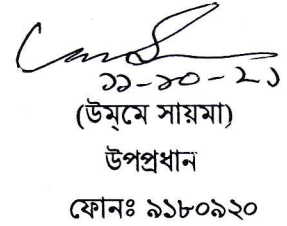 ১১-১০-২১
(উম্মে সায়মা)
উপপ্রধান
ফোনঃ ৯১৮০৯২০